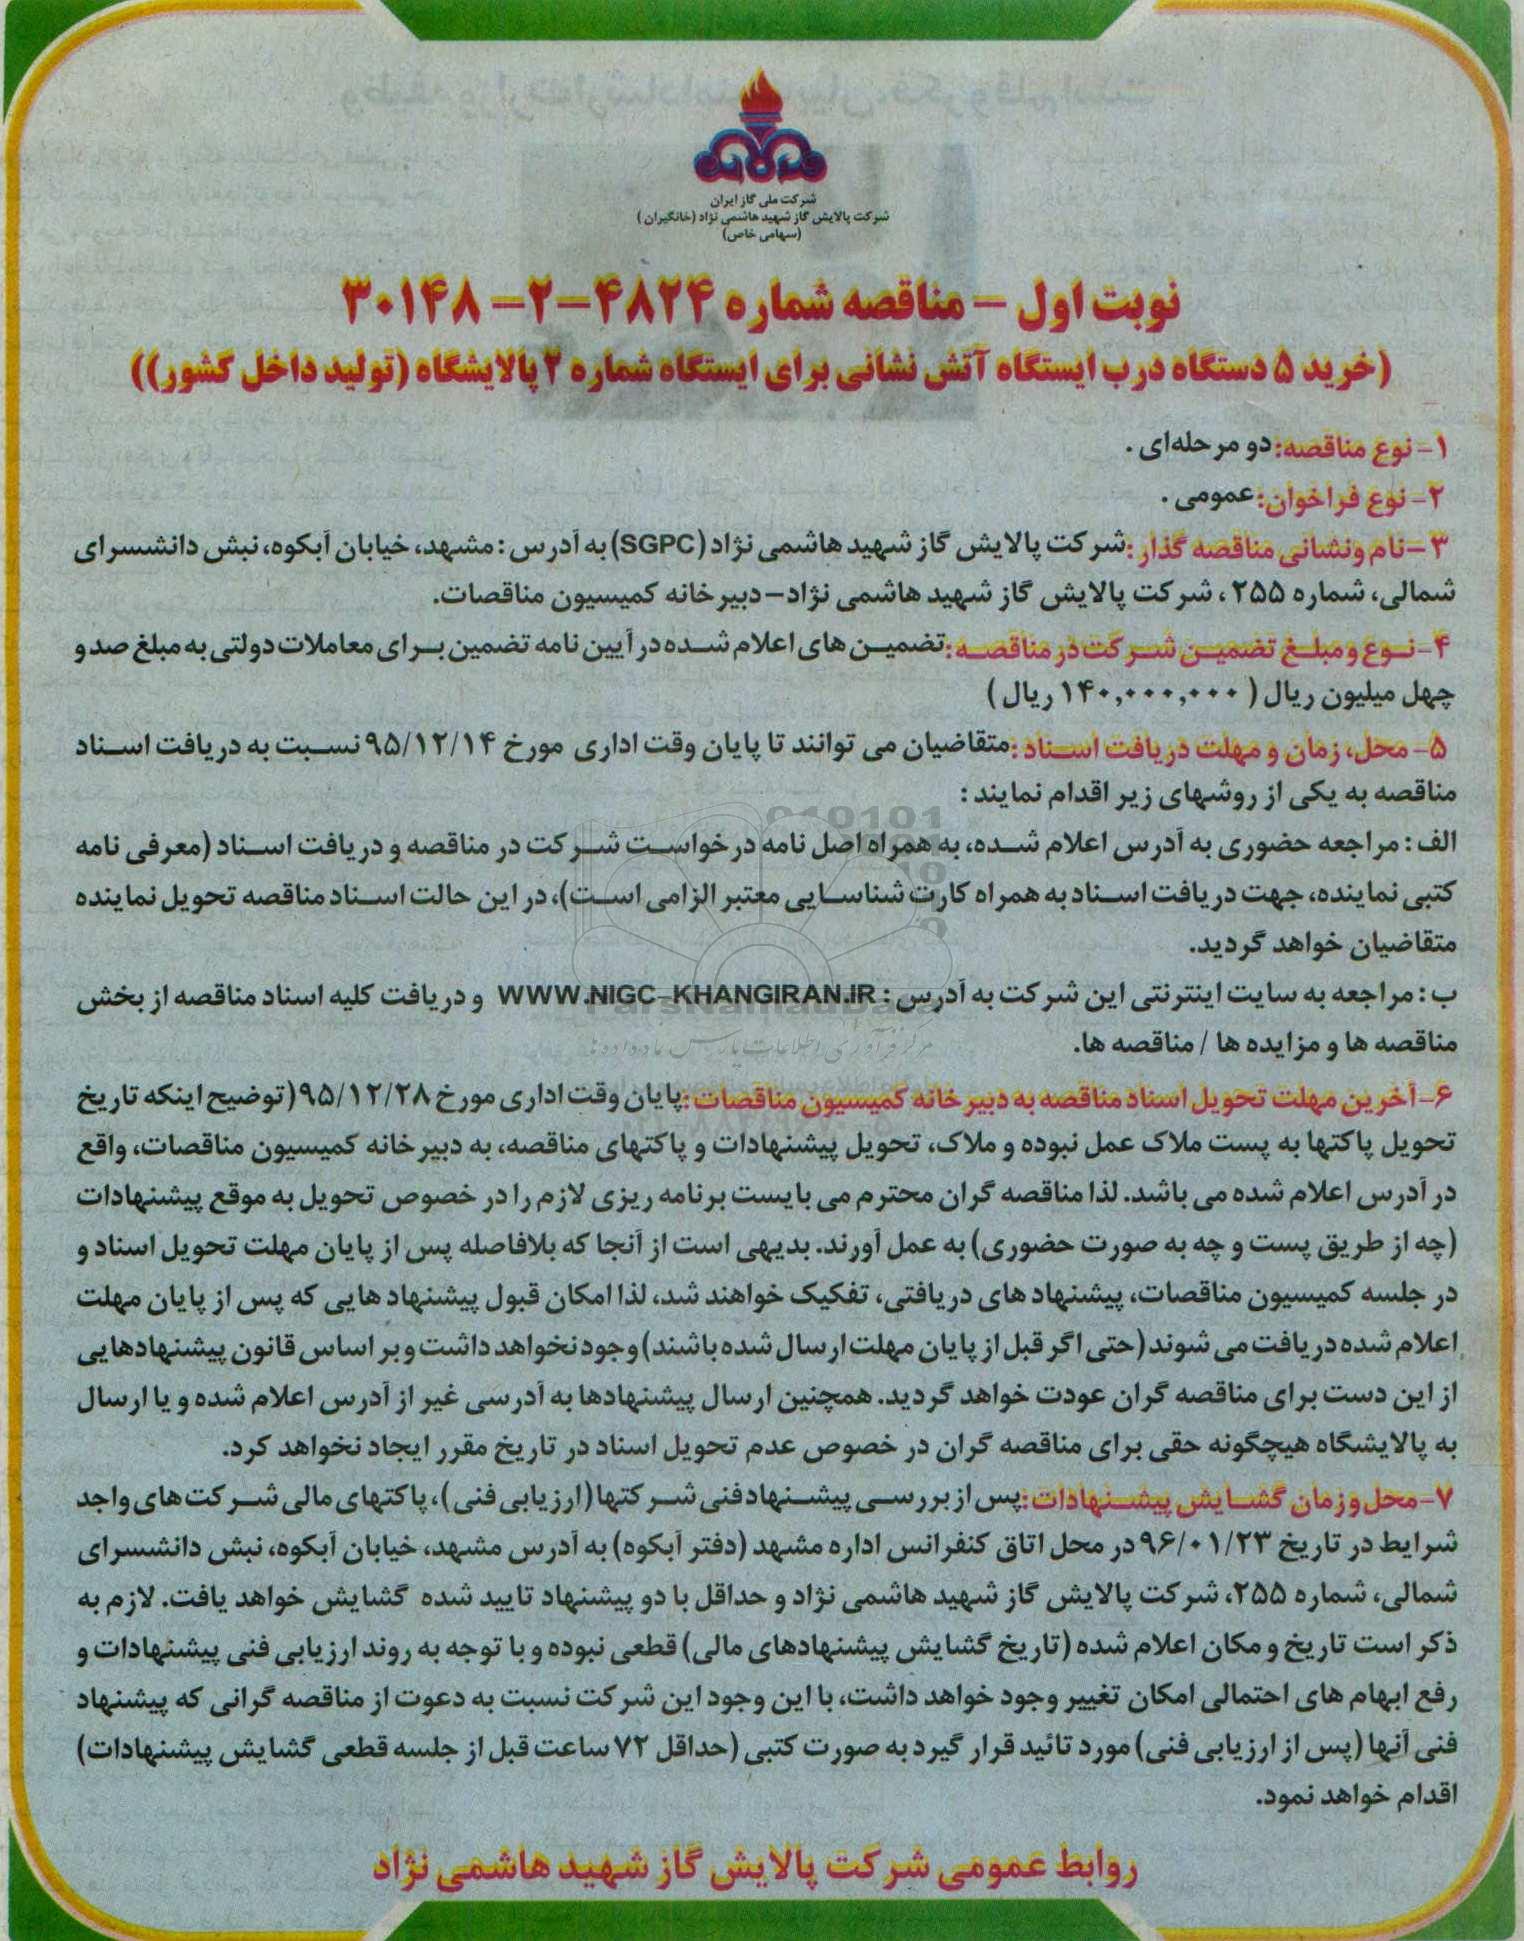 شرکت ملی گاز ایران
شرکت پالایش گاز شهید هاشمی نژاد (خانگیران)
(سهامی خاص)
نوبت اول – مناقصه شماره ۴۸۲۴–۲– ۳۰۱۴۸
(خرید ۵ دستگاه درب ایستگاه آتش نشانی برای ایستگاه شماره ۲ پالایشگاه (تولید داخل کشور))
۱- نوع مناقصه: دو مرحله‌ای .
۲- نوع فراخوان: عمومی .
۳-نام ونشانی مناقصه گذار: شرکت پالایش گاز شهید هاشمی نژاد (SGPC) به آدرس : مشهد، خیابان آبکوه، نبش دانشسرای
شمالی، شماره ۲۵۵ ، شرکت پالایش گاز شهید هاشمی نژاد–دبیرخانه کمیسیون مناقصات.
۴-نوع و مبلغ تضمین شرکت در مناقصه: تضمین های اعلام شده در آیین نامه تضمین برای معاملات دولتی به مبلغ صد و
چهل میلیون ریال ( ۱۴۰,۰۰۰,۰۰۰ ریال )
۵- محل، زمان و مهلت دریافت اسناد: متقاضیان می توانند تا پایان وقت اداری مورخ ۹۵/۱۲/۱۴ نسبت به دریافت اسناد
مناقصه به یکی از روشهای زیر اقدام نمایند :
الف : مراجعه حضوری به آدرس اعلام شده، به همراه اصل نامه درخواست شرکت در مناقصه و دریافت اسناد (معرفی نامه
کتبی نماینده، جهت دریافت اسناد به همراه کارت شناسایی معتبر الزامی است)، در این حالت اسناد مناقصه تحویل نماینده
متقاضیان خواهد گردید.
ب : مراجعه به سایت اینترنتی این شرکت به آدرس : WWW.NIGC-KHANGIRAN.IR و دریافت کلیه اسناد مناقصه از بخش
مناقصه ها و مزایده ها / مناقصه ها.
ParsNamadData
مرکز فرآوری اطلاعات پارس نماد داده ها
۶-آخرین مهلت تحویل اسناد مناقصه به دبیرخانه کمیسیون مناقصات: پایان وقت اداری مورخ ۹۵/۱۲/۲۸ (توضیح اینکه تاریخ
تحویل پاکتها به پست ملاک عمل نبوده و ملاک، تحویل پیشنهادات و پاکتهای مناقصه، به دبیرخانه کمیسیون مناقصات، واقع
در آدرس اعلام شده می باشد. لذا مناقصه گران محترم می بایست برنامه ریزی لازم را در خصوص تحویل به موقع پیشنهادات
(چه از طریق پست و چه به صورت حضوری) به عمل آورند. بدیهی است از آنجا که بلافاصله پس از پایان مهلت تحویل اسناد و
در جلسه کمیسیون مناقصات، پیشنهاد های دریافتی، تفکیک خواهند شد، لذا امکان قبول پیشنهاد هایی که پس از پایان مهلت
اعلام شده دریافت می شوند (حتی اگر قبل از پایان مهلت ارسال شده باشند) وجود نخواهد داشت و بر اساس قانون پیشنهادهایی
از این دست برای مناقصه گران عودت خواهد گردید. همچنین ارسال پیشنهادها به آدرسی غیر از آدرس اعلام شده و یا ارسال
به پالایشگاه هیچگونه حقی برای مناقصه گران در خصوص عدم تحویل اسناد در تاریخ مقرر ایجاد نخواهد کرد.
۷-محل و زمان گشایش پیشنهادات: پس از بررسی پیشنهاد فنی شرکتها (ارزیابی فنی)، پاکتهای مالی شرکت های واجد
شرایط در تاریخ ۹۶/۰۱/۲۳ در محل اتاق کنفرانس اداره مشهد (دفتر آبکوه) به آدرس مشهد، خیابان آبکوه، نبش دانشسرای
شمالی، شماره ۲۵۵، شرکت پالایش گاز شهید هاشمی نژاد و حداقل با دو پیشنهاد تایید شده گشایش خواهد یافت. لازم به
ذکر است تاریخ و مکان اعلام شده (تاریخ گشایش پیشنهادهای مالی) قطعی نبوده و با توجه به روند ارزیابی فنی پیشنهادات و
رفع ابهام های احتمالی امکان تغییر وجود خواهد داشت، با این وجود این شرکت نسبت به دعوت از مناقصه گرانی که پیشنهاد
فنی آنها (پس از ارزیابی فنی) مورد تائید قرار گیرد به صورت کتبی (حداقل ۷۲ ساعت قبل از جلسه قطعی گشایش پیشنهادات)
اقدام خواهد نمود.
روابط عمومی شرکت پالایش گاز شهید هاشمی نژاد